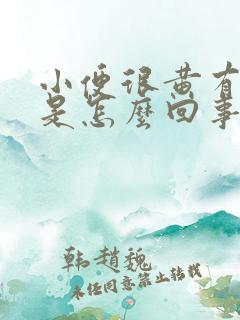 小便很黄有
是怎麼回事
韩赵魏
未经同意禁止转载